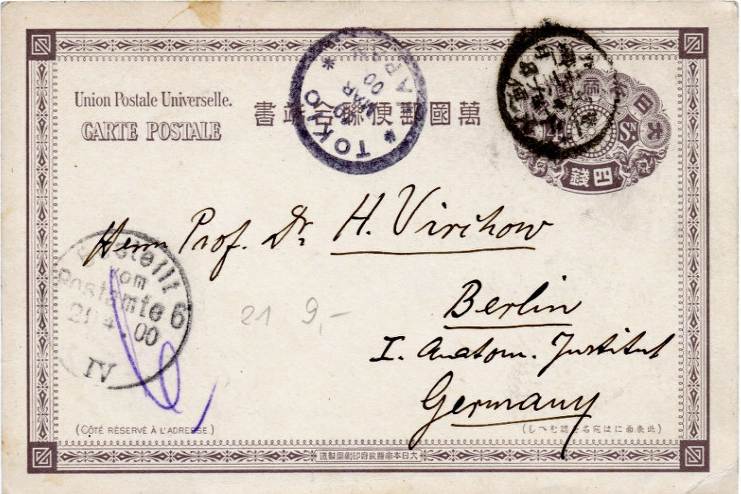 Union Postale Universelle.
CARTE POSTALE
書端合聯便郵國萬
TOKIO
MAR
00
JAPAN
大日
5Sn
四錢
Herrn Prof. Dr. H. Virchow
Berlin
I. Anatom. Institut
Germany
Bestellt
vom
Postamte 6
21 4 00
IV
21 9,-
(CÔTÉ RÉSERVÉ À L'ADRESSE)
(此表面には宛名を認むへし)
造製局刷印府政國帝本日大